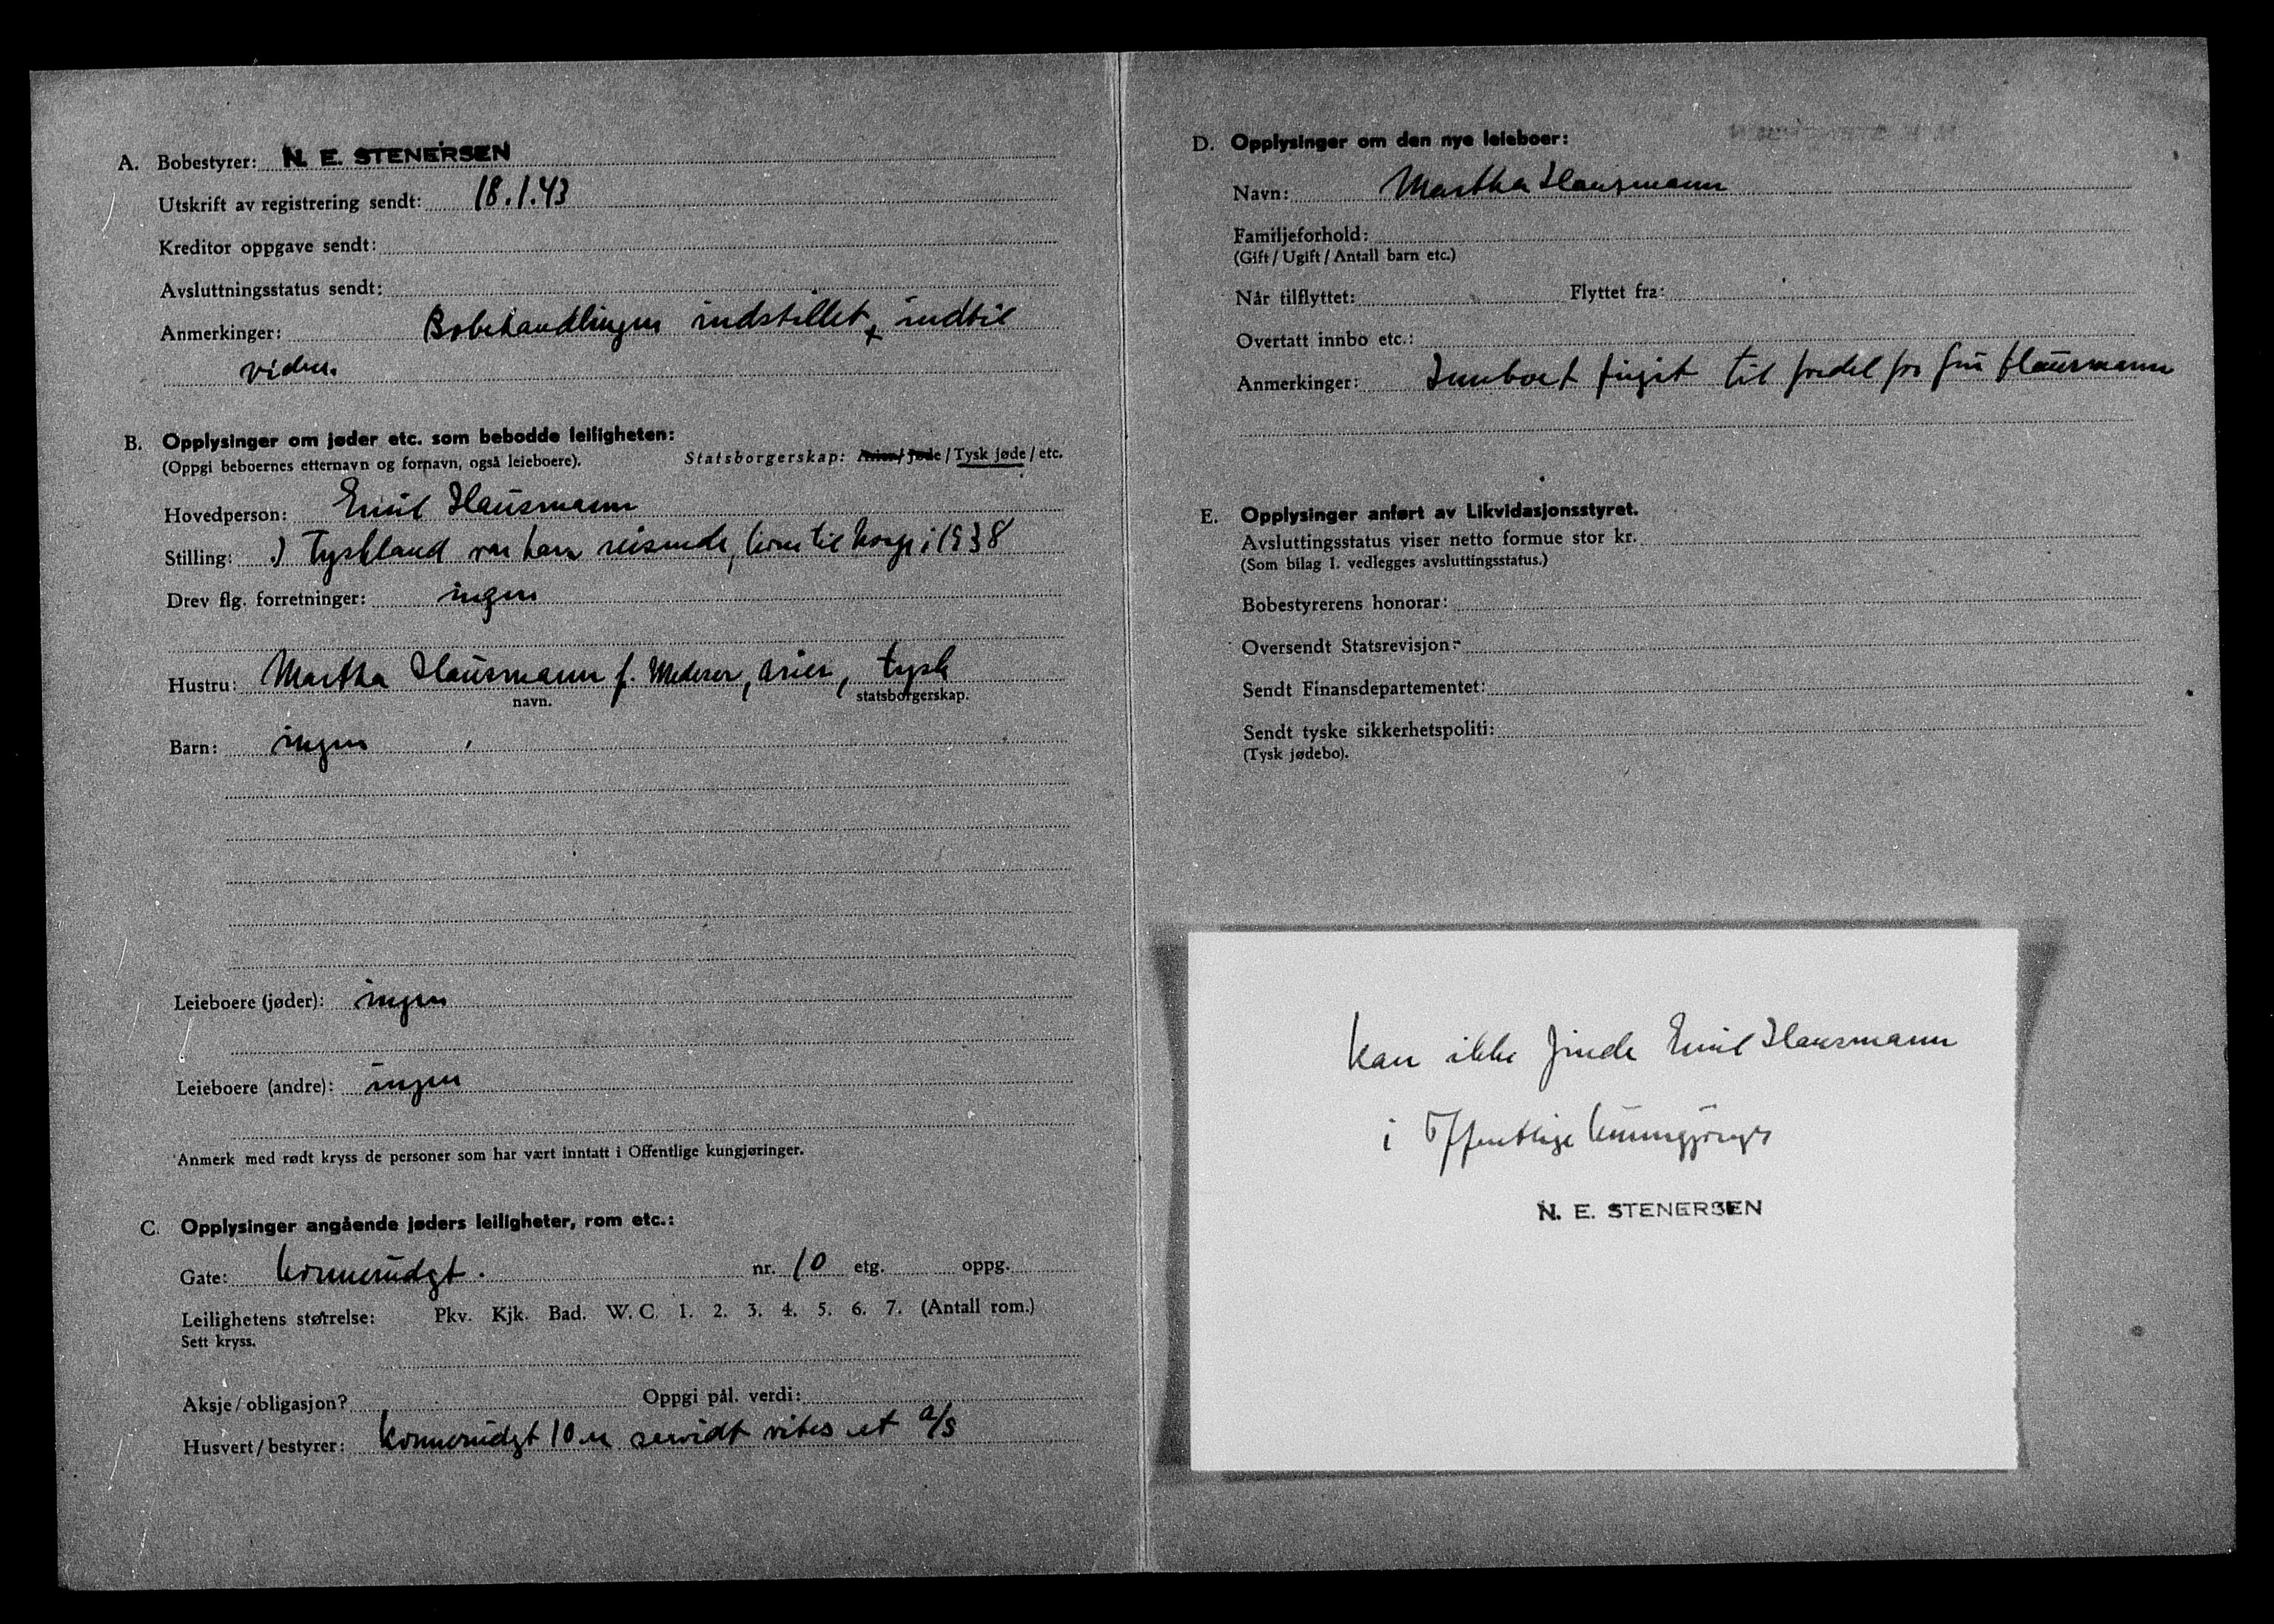 A. Bobestyrer: N. E. STENERSEN
Utskrift av registrering sendt: 18.1.43
Kreditor oppgave sendt:
Avsluttningsstatus sendt:
Anmerkinger: Bobehandlingen indstillet, indtil
videre.
B. Opplysinger om jøder etc. som bebodde leiligheten:
(Oppgi beboernes etternavn og fornavn, også leieboere). Statsborgerskap: Arier / Jøde / Tysk jøde / etc.
Hovedperson: Emil Hausmann
Stilling: I Tyskland var han reisende, kom til Norge i 1938
Drev flg. forretninger: ingen
Hustru: Martha Hausmann f. Mederer, arier, tysk
navn. statsborgerskap.
Barn: ingen
Leieboere (jøder): ingen
Leieboere (andre): ingen
Anmerk med rødt kryss de personer som har vært inntatt i Offentlige kungjøringer.
C. Opplysinger angående jøders leiligheter, rom etc.:
Gate: Konnerudgt. nr. 10 etg. oppg.
Leilighetens størrelse: Pkv. Kjk. Bad. W. C. 1. 2. 3. 4. 5. 6. 7. (Antall rom.)
Sett kryss.
Aksje / obligasjon? Oppgi pål. verdi:
Husvert / bestyrer: Konnerudgt 10 er savidt vites et A/S
D. Opplysinger om den nye leieboer:
Navn: Martha Hausmann
Familjeforhold:
(Gift / Ugift / Antall barn etc.)
Når tilflyttet: Flyttet fra:
Overtatt innbo etc.:
Anmerkinger: Innboet frigit til fordel for fru Hausmann
E. Opplysinger anført av Likvidasjonsstyret.
Avsluttingsstatus viser netto formue stor kr.
(Som bilag I. vedlegges avsluttingsstatus.)
Bobestyrerens honorar:
Oversendt Statsrevisjon:
Sendt Finansdepartementet:
Sendt tyske sikkerhetspoliti:
(Tysk jødebo).
Kan ikke finde Emil Hausmann
i Offentlige
N. E. STENERSEN